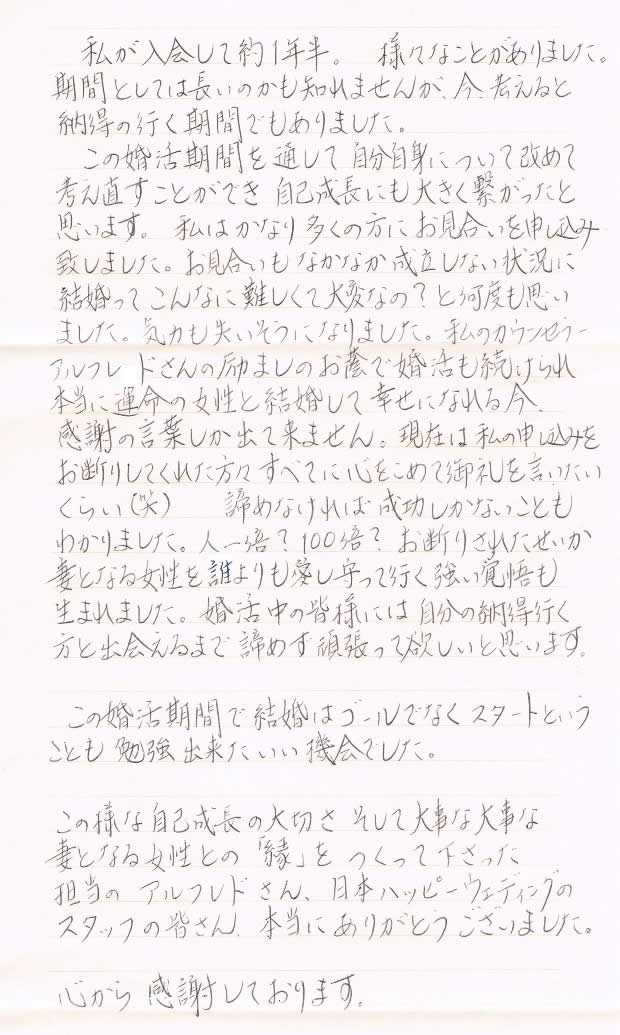 私が入会して約1年半。 様々なことがありました。
期間としては長いのかも知れませんが、今、考えると
納得の行く期間でもありました。
この婚活期間を通して自分自身について改めて
考え直すことができ 自己成長にも大きく繋がったと
思います。 私はかなり多くの方にお見合いを申し込み
致しました。お見合いもなかなか成立しない状況に
結婚ってこんなに難しくて大変なの？と何度も思い
ました。気力も失いそうになりました。私のカウンセラー
アルフレドさんの励ましのお蔭で婚活も続けられ
本当に運命の女性と結婚して幸せになれる今、
感謝の言葉しか出て来ません。現在は私の申し込みを
お断りしてくれた方々すべてに心をこめて御礼を言いたい
くらい（笑） 諦めなければ成功しかないことも
わかりました。人一倍？100倍？お断りされたせいか
妻となる女性を誰よりも愛し守って行く強い覚悟も
生まれました。婚活中の皆様には自分の納得行く
方と出会えるまで諦めず頑張って欲しいと思います。
この婚活期間で結婚はゴールでなくスタートという
ことも勉強出来たいい機会でした。
この様な自己成長の大切さ そして大事な大事な
妻となる女性との「縁」を つくって下さった
担当の アルフレドさん、日本ハッピーウェディングの
スタッフの皆さん、本当にありがとうございました。
心から 感謝しております。